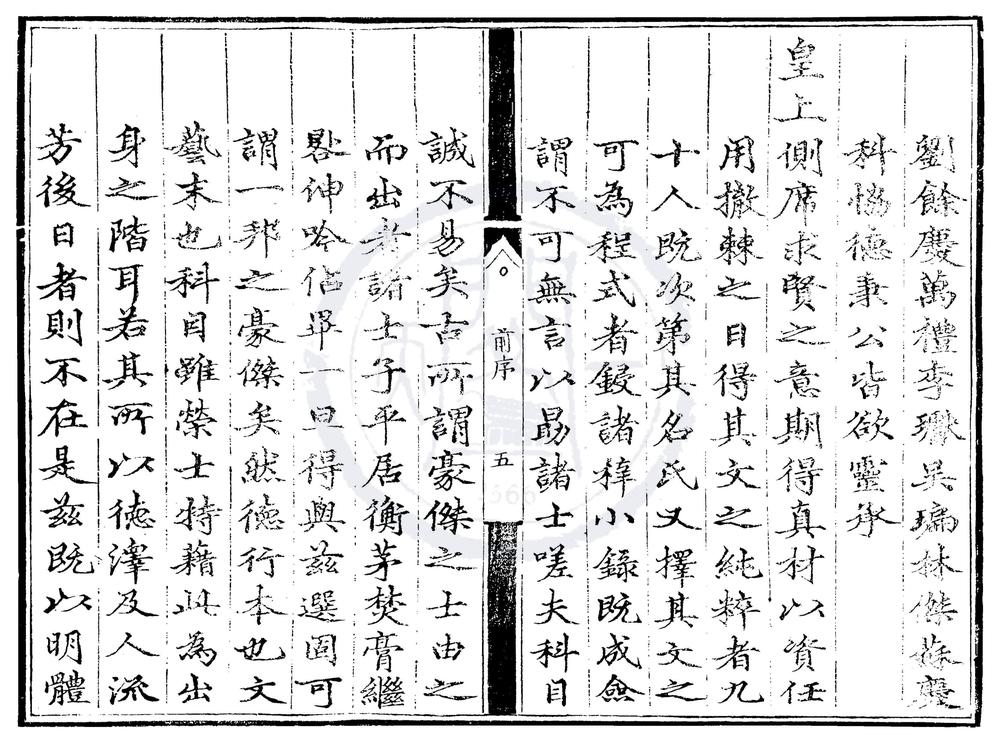 劉餘慶萬禮李瓛吳瑞林傑蘇襲
科恊德秉公皆欲靈承
皇上側席求賢之意期得真材以資任
用撤棘之日得其文之純粹者九
十人既次第其名氏又擇其文之
可為程式者鋟諸梓小錄既成僉
謂不可無言以勗諸士嗟夫科目
前序 五
誠不易矣古所謂豪傑之士由之
而出者諸士子平居衡茅焚膏繼
晷呻吟佔畢一旦得與茲選固可
謂一邦之豪傑矣然德行本也文
藝末也科目雖榮士特藉此為出
身之階耳若其所以德澤及人流
芳後日者則不在是茲既以明體